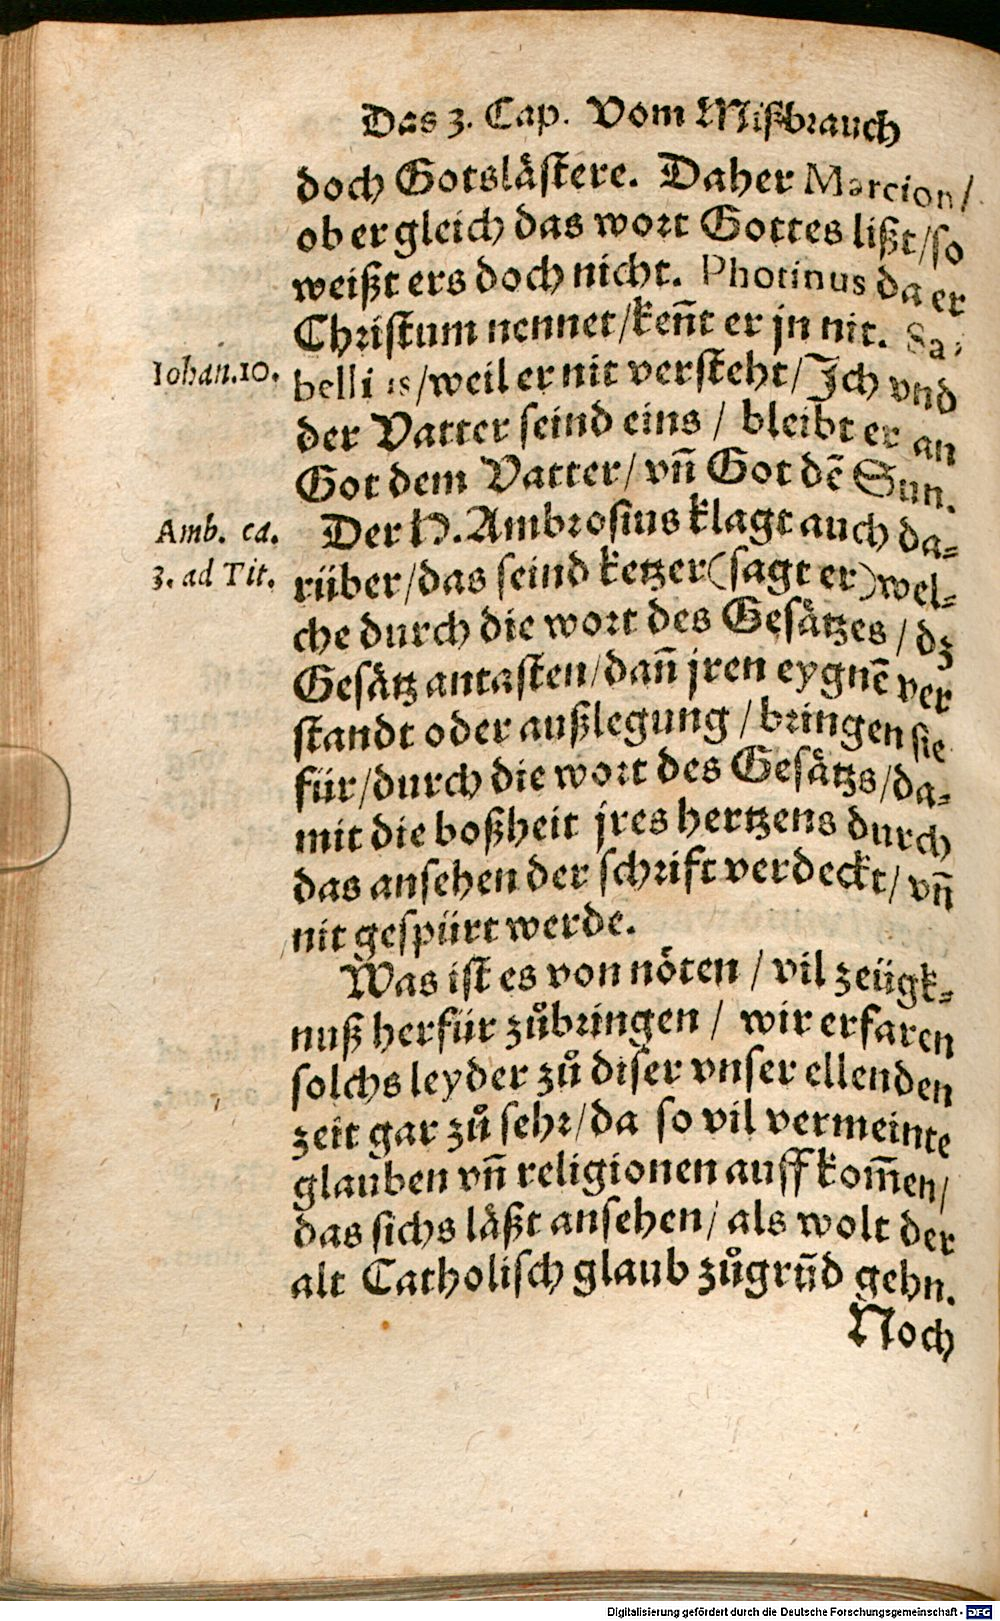 Das 3. Cap. Vom Mißbrauch
doch Gotslästere. Daher Marcion/
ob er gleich das wort Gottes lißt/so
weißt ers doch nicht. Photinus da er
Christum nennet/keñt er jn nit. Sa-
Iohan.10.
bellius/weil er nit versteht/Jch vnd
der Vatter seind eins / bleibt er an
Got dem Vatter/ vñ Got dē Sun.
Amb. ca.
Der H. Ambrosius klagt auch da-
3. ad Tit.
rüber/das seind ketzer(sagt er)wel-
che durch die wort des Gesätzes / dz
Gesätz antasten/dañ jren eygnē ver
standt oder außlegung / bringen sie
für/durch die wort des Gesätzs/da-
mit die boßheit jres hertzens durch
das ansehen der schrift verdeckt/ vñ
nit gespürt werde.
Was ist es von nöten / vil zeügk-
nuß herfür zůbringen / wir erfaren
solchs leyder zů diser vnser ellenden
zeit gar zů sehr/da so vil vermeinte
glauben vñ religionen auff kom̃en/
das sichs läßt ansehen/ als wolt der
alt Catholisch glaub zůgrũd gehn.
Noch
Digitalisierung gefördert durch die Deutsche Forschungsgemeinschaft - DFG